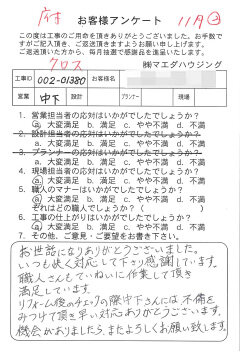 府 お客様アンケート 11月
この度は工事のご用命を頂きありがとうございました。お手数で
すがご記入頂き、ご返送頂きますようお願い申し上げます。
ご返送頂いた方から、毎月抽選で感謝品を進呈いたします。
クロス ㈱マエダハウジング
工事ID 002-01380 お客様名
営業 中下 設計 プランナー 現場
1. 営業担当者の応対はいかがでしたでしょうか?
a. 大変満足 b. 満足 c. やや不満 d. 不満
2. 設計担当者の応対はいかがでしたでしょうか?
a. 大変満足 b. 満足 c. やや不満 d. 不満
3. プランナーの応対はいかがでしたでしょうか?
a. 大変満足 b. 満足 c. やや不満 d. 不満
4. 現場担当者の応対はいかがでしたでしょうか?
a. 大変満足 b. 満足 c. やや不満 d. 不満
5. 職人のマナーはいかがでしたでしょうか?
a. 大変満足 b. 満足 c. やや不満 d. 不満
それはどの職人でしょうか?( )
6. 工事の仕上がりはいかがでしたでしょうか?
a. 大変満足 b. 満足 c. やや不満 d. 不満
7. その他、ご意見・ご要望をお書き下さい。
お世話になりありがとうございました。
いつも快く対応して下さり感謝しています。
職人さんもていねいに作業して頂き
満足しています。
リフォーム後のチェックの際中下さんには不備を
みつけて頂き早い対応ありがとうございます。
機会がありましたら、またよろしくお願い致します。